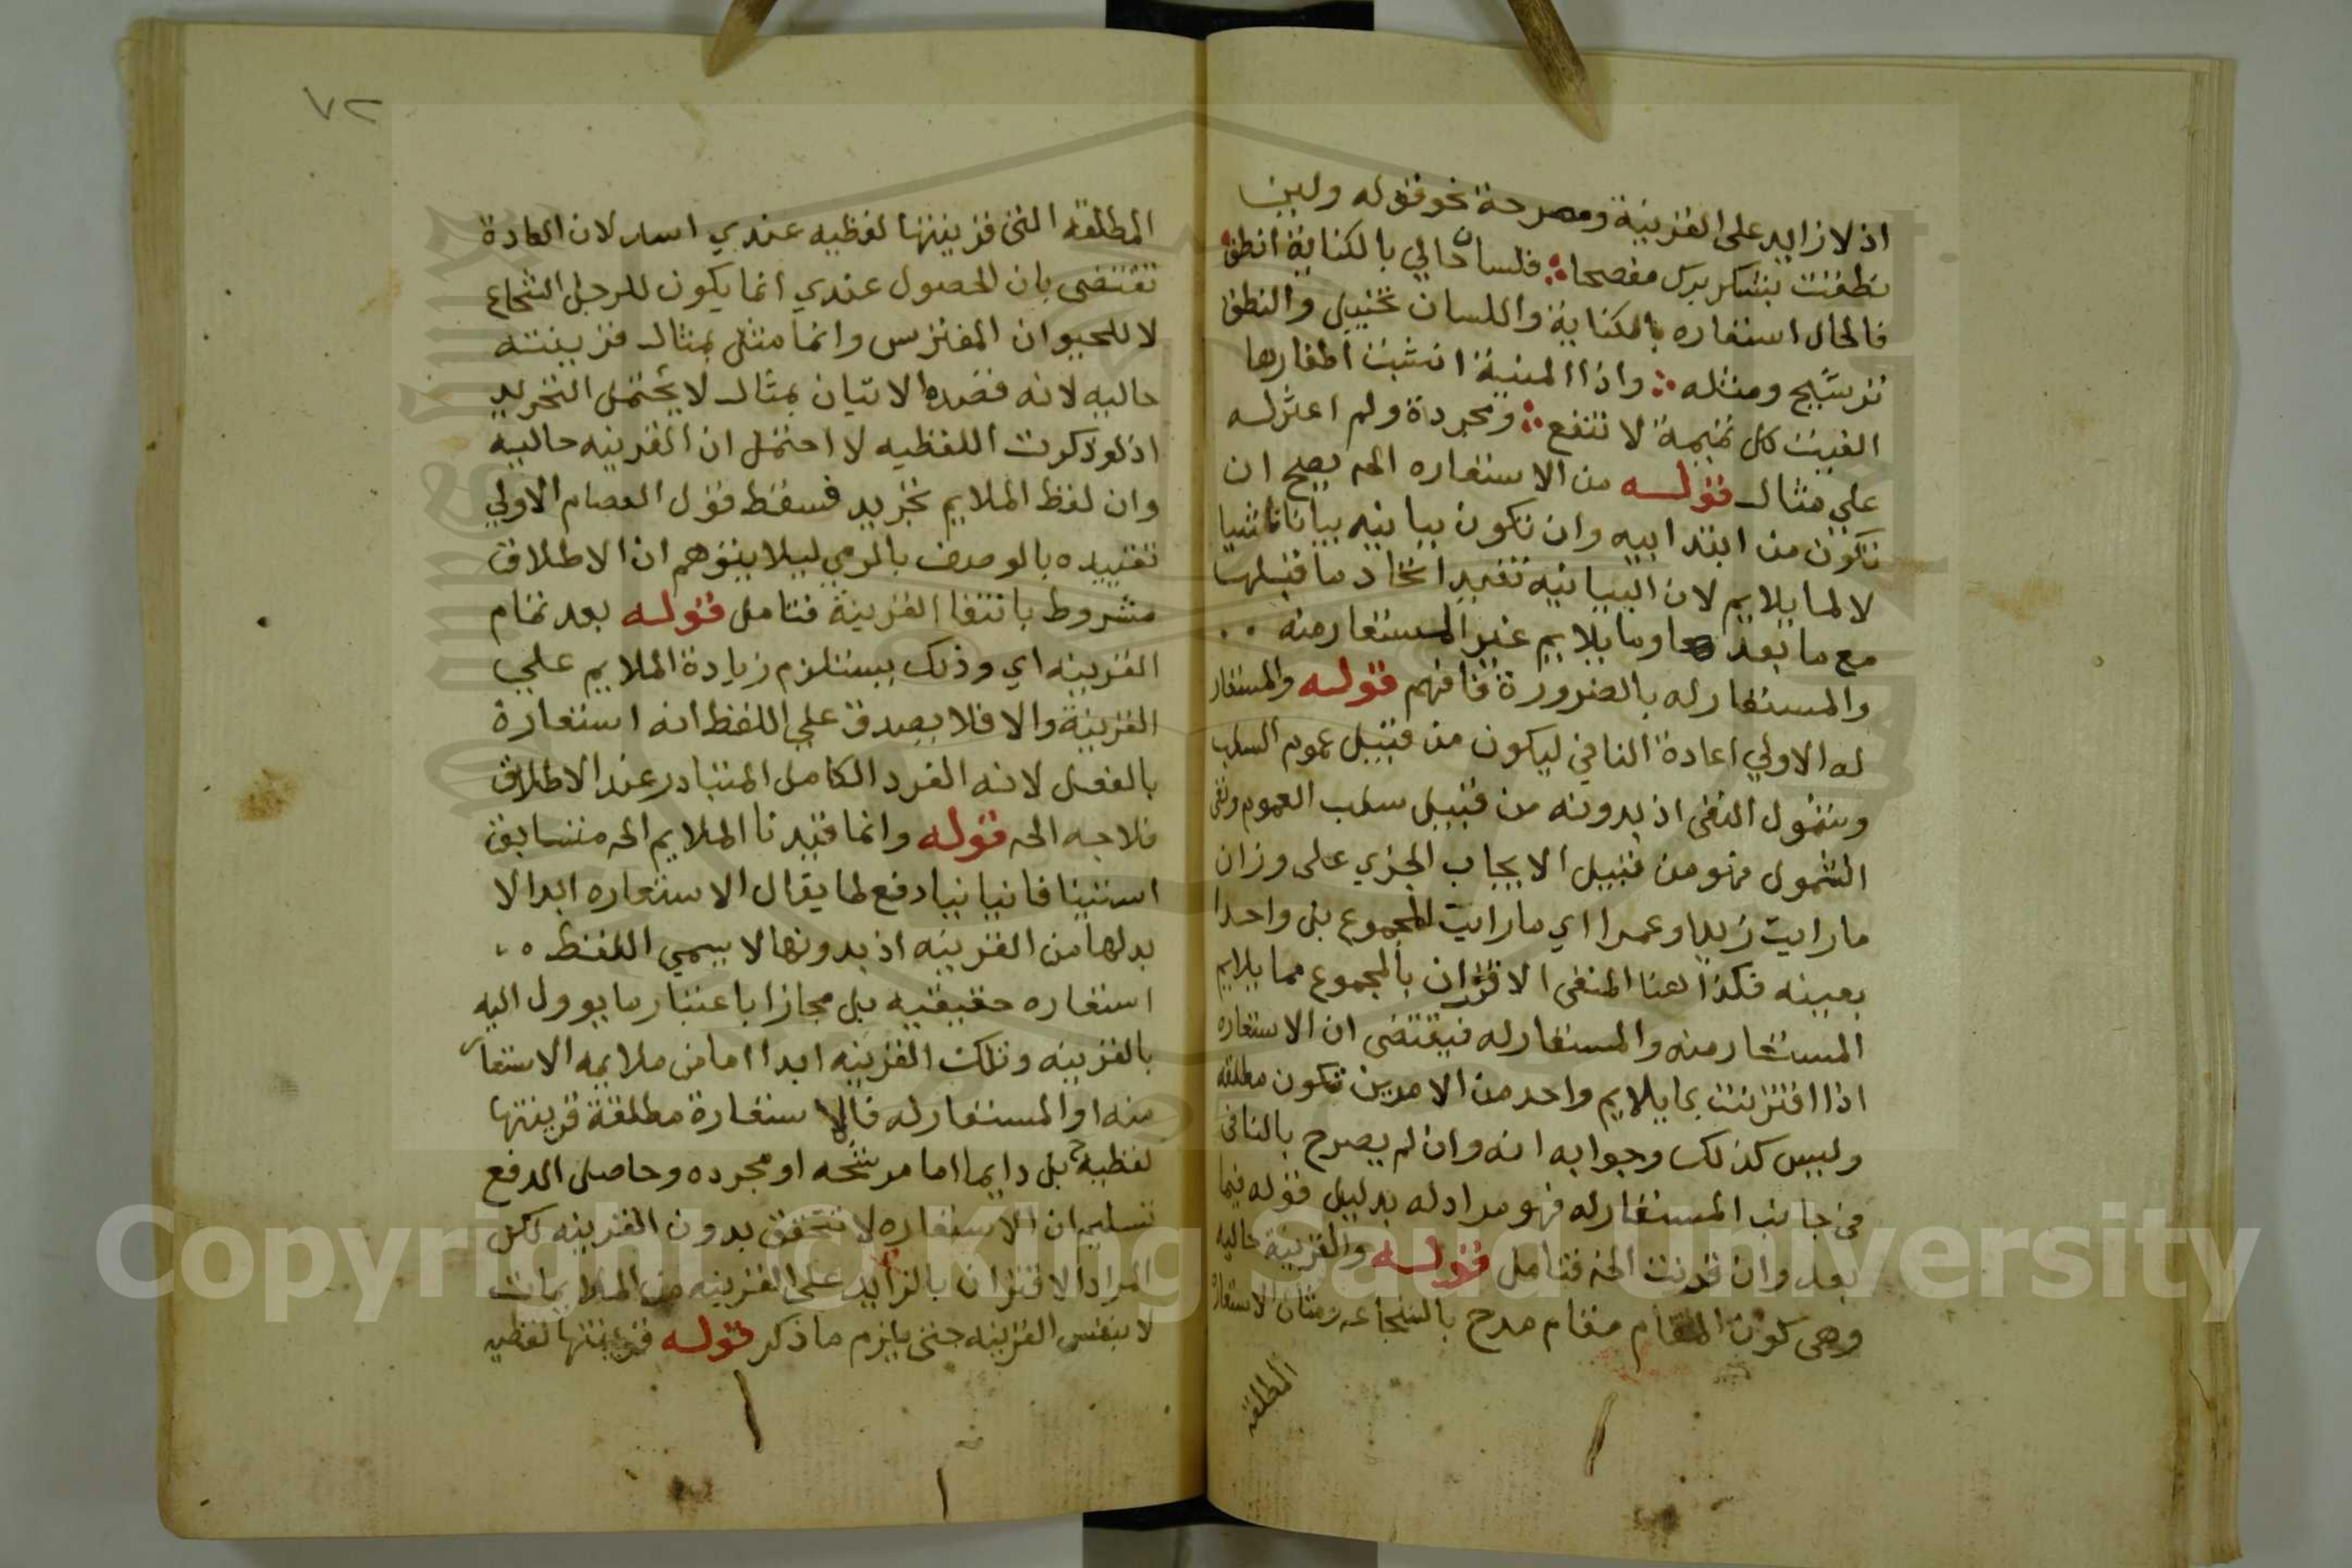 اذ لا زايد على القرينة ومصرحة نحو قوله ولين
نطقت بشكر برك مفصحا فلسان حالي بالكناية انطق
فالحال استعاره بالكناية واللسان تخييل والنطق
ترشيح ومثله واذا المنية انشبت اظفارها
الفيت كل تميمة لا تنفع ومجردة ولم اعثر له
علي مثال قوله من الاستعاره الخ يصح ان
تكون من ابتداييه وان تكون بيانيه بيانا ناشيا
لا لما يلايم لان البيانيه تفيد اتحاد ما قبلها
مع ما بعدها وما يلايم غير المستعار منه
والمستعار له بالضرورة فافهم قوله والمستعار
له الاولي اعادة النافي ليكون من قبيل عموم السلب
وشمول النفي اذ بدونه من قبيل سلب العموم ونفي
الشمول فهو من قبيل الايجاب الجزي على وزان
ما رايت زيدا وعمرا اي ما رايت المجموع بل واحدا
بعينه فكذا هنا المنفى الاقتران بالمجموع مما يلايم
المستعار منه والمستعار له فيقتضى ان الاستعاره
اذا اقترنت بما يلايم واحد من الامرين تكون مطلقه
وليس كذلك وجوابه انه وان لم يصرح بالنافى
فى جانب المستعار له فهو مراد له بدليل قوله فيما
بعد وان قرنت الخ فتامل قوله والقرينة حاليه
وهى كون المقام مقام مدح بالشجاعه ومثال الاستعارة
المطلقه
٧٢
المطلقه التى قرينتها لفظيه عندي اسد لان العادة
تقتضى بان الحصول عندي انما يكون للرجل الشجاع
لا للحيوان المفترس وانما مثل بمثال قرينته
حاليه لانه قصده الاتيان بمثال لا يحتمل التجريد
اذ لو ذكرت اللفظيه لا احتمل ان القرينه حاليه
وان لفظ الملايم تجريد فسقط قول العصام الاولي
تقييده بالوصف بالرمي ليلا يتوهم ان الاطلاق
مشروط بانتفا القرينة فتامل قوله بعد تمام
القرينه اي وذلك يستلزم زيادة الملايم علي
القرينة والا فلا يصدق علي اللفظ انه استعارة
بالفعل لانه الفرد الكامل المتبادر عند الاطلاق
فلا جه الخ قوله وانما قيدنا الملايم الخ مستانف
استينافا بيانيا دفع لما يقال الاستعاره ابدا لا
بد لها من القرينه اذ بدونها لا يسمي اللفظ
استعاره حقيقيه بل مجازا باعتبار ما يوول اليه
بالقرينه وتلك القرينه ابدا اما من ملايمه الاستعار
منه او المستعار له فالاستعارة مطلقة قرينتها
لفظية بل دايما اما مرشحه او مجرده وحاصل الدفع
تسليم ان الاستعاره لا تتحقق بدون القرينه لكن
المراد الاقتران بالزايد على القرينه من الملايمات
لا بنفس القرينه حتى يلزم ما ذكر قوله قرينتها لفظيه
Copyright © King Saud University